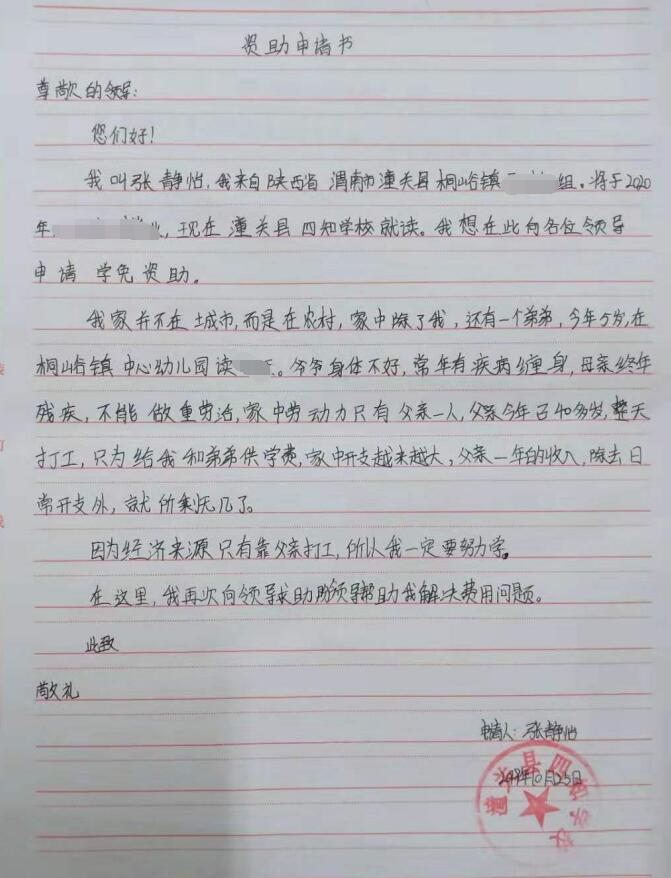 资助申请书
尊敬的领导:
您们好!
我叫张静怡,我来自陕西省渭南市潼关县桐峪镇 组。将于2020
年, 现在潼关县四知学校就读。我想在此向各位领导
申请学免资助。
我家并不在城市,而是在农村,家中除了我,还有一个弟弟,今年5岁,在
桐峪镇中心幼儿园读 。爷爷身体不好,常年有疾病缠身,母亲终年
残疾,不能做重劳治,家中劳动力只有父亲一人,父亲今年已40多岁,整天
打工,只为给我和弟弟供学费,家中开支越来越大,父亲一年的收入,除去日
常开支外,就所剩无几了。
因为经济来源只有靠父亲打工,所以我一定要努力学。
在这里,我再次向领导求助盼领导帮助我解决费用问题。
此致
敬礼
申请人:张静怡
10月23日
潼关县四知学校